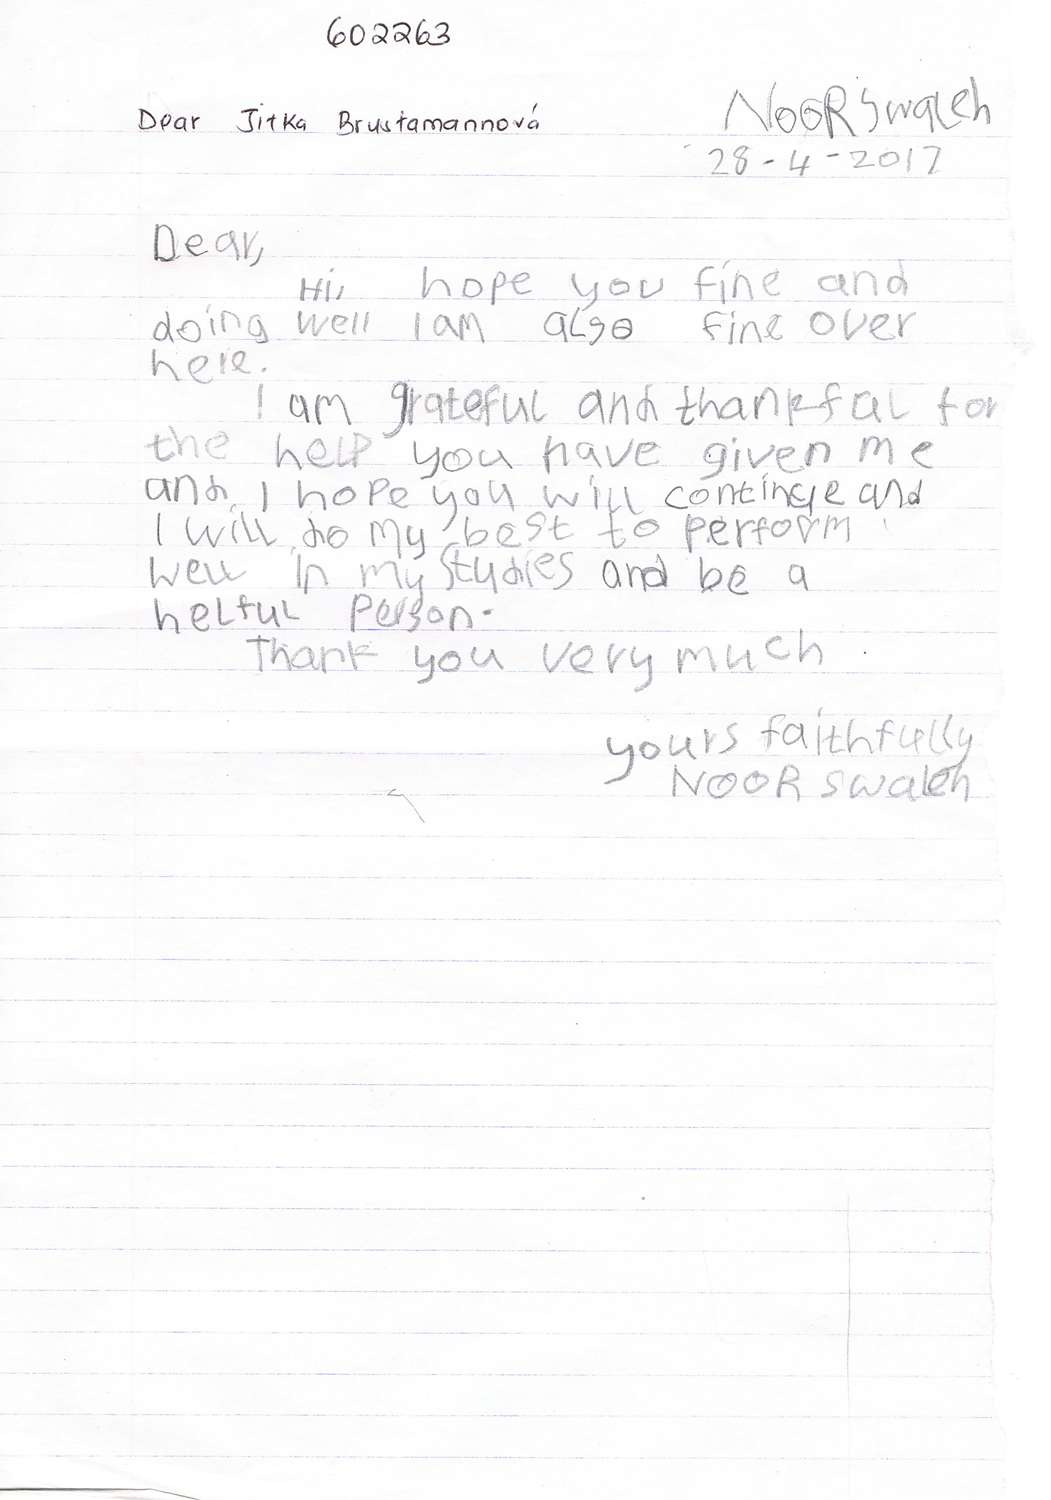 602263
Dear Jitka Brustamannová
NOOR Swaleh
28-4-2017
Dear,
Hi, hope you fine and
doing well I am also fine over
here.
I am grateful and thankful for
the help you have given me
and I hope you will continue and
I will do my best to perform
well in my studies and be a
helful person.
Thank you very much
yours faithfully
NOOR swaleh